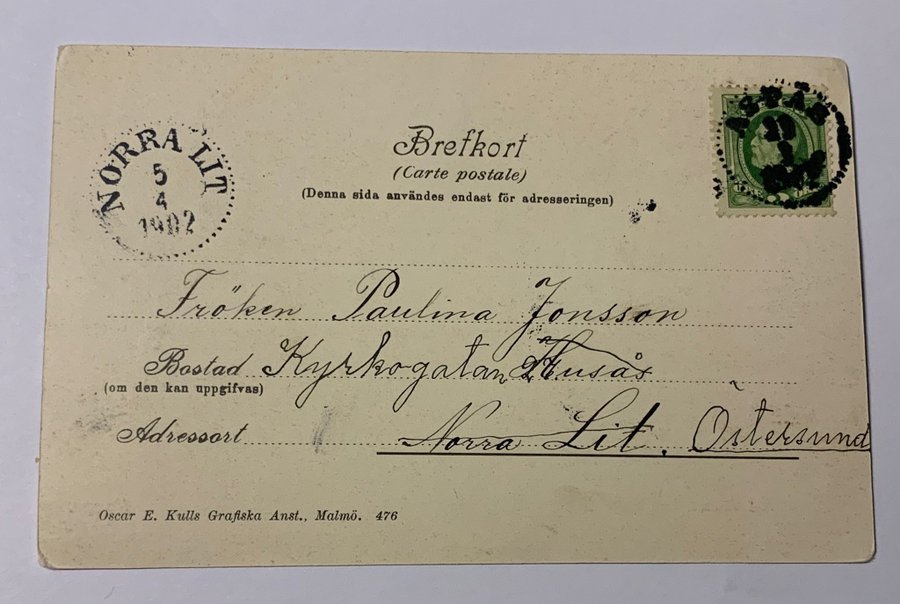 NORRA LIT
5
4
1902
Brefkort
(Carte postale)
(Denna sida användes endast för adresseringen)
ASPÅS
Fröken Paulina Jonsson
Bostad Kyrkogatan Husås
(om den kan uppgifvas)
Adressort Norra Lit. Östersund
Oscar E. Kulls Grafiska Anst., Malmö. 476